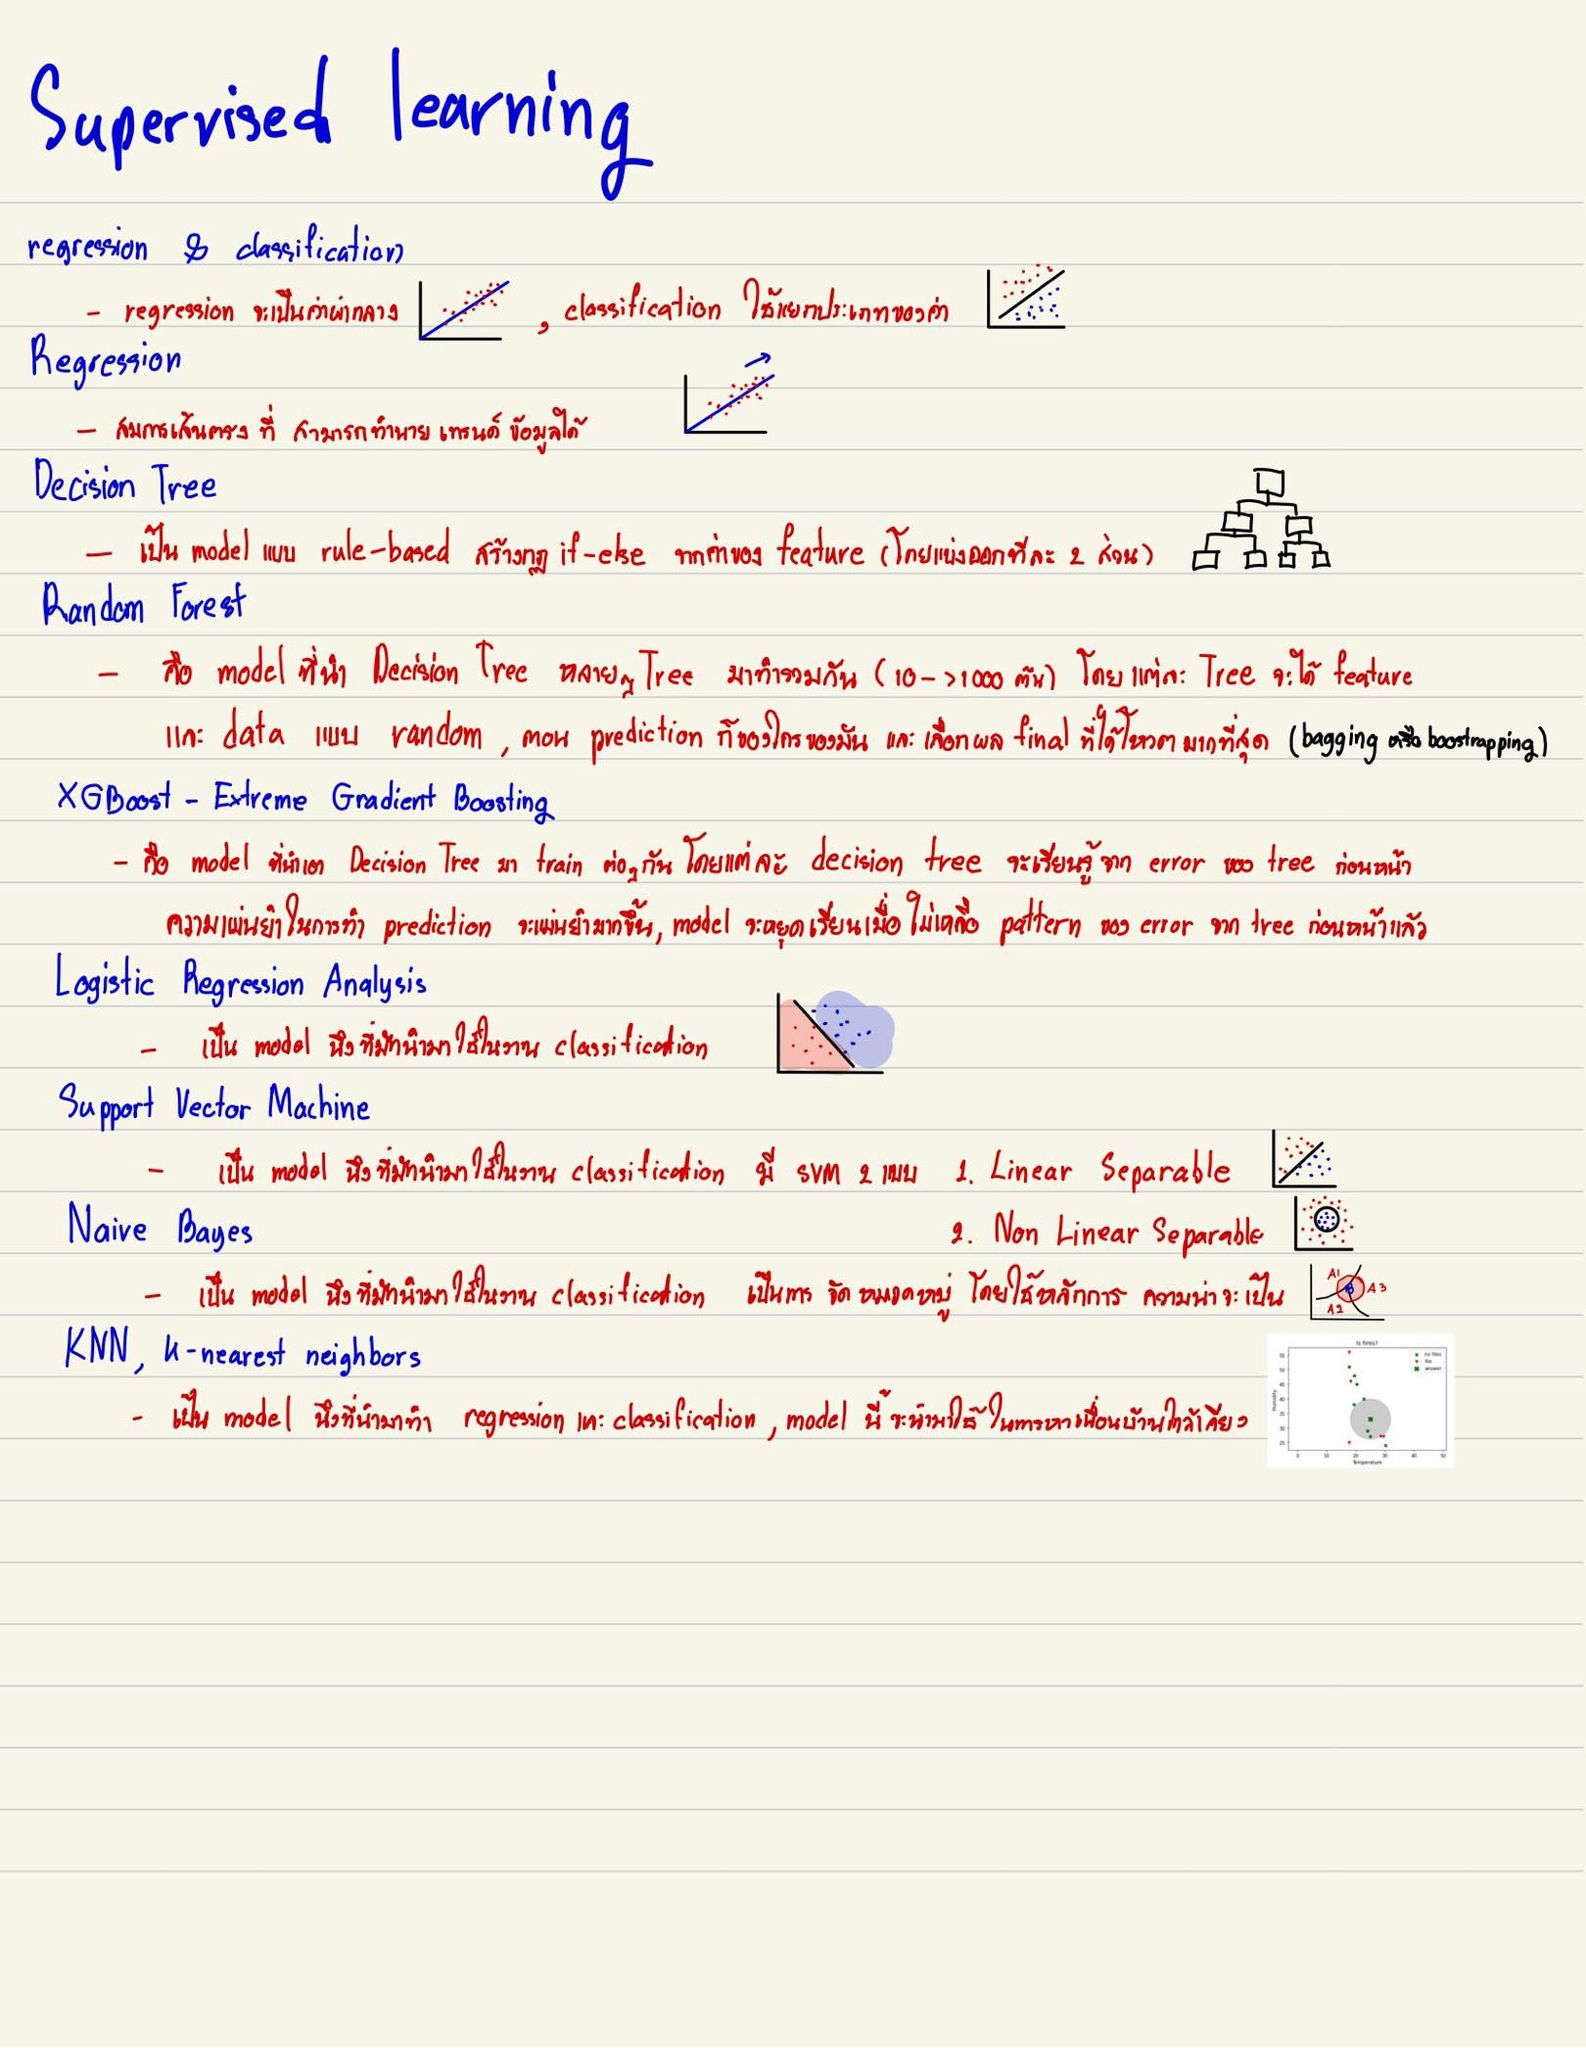 Supervised learning
regression & classification
- regression จะเป็นค่าผ่ากลาง , classification ใช้แยกประเภทของค่า
Regression
- สมการเส้นตรง ที่ สามารถทำนาย เทรนด์ ข้อมูลได้
Decision Tree
- เป็น model แบบ rule-based สร้างกฎ if-else จากค่าของ feature (โดยแบ่งออกทีละ 2 ส่วน)
Random Forest
- คือ model ที่นำ Decision Tree หลายๆ Tree มาทำรวมกัน (10->1000 ต้น) โดย แต่ละ Tree จะได้ feature
และ data แบบ random , ตอน prediction ก็ของใครของมัน และ เลือกผล final ที่ได้โหวต มากที่สุด (bagging หรือ boostrapping)
XGBoost - Extreme Gradient Boosting
- คือ model ที่นำเอา Decision Tree มา train ต่อๆกัน โดยแต่ละ decision tree จะเรียนรู้จาก error ของ tree ก่อนหน้า
ความแม่นยำในการทำ prediction จะแม่นยำมากขึ้น, model จะหยุดเรียนเมื่อ ไม่เหลือ pattern ของ error จาก tree ก่อนหน้าแล้ว
Logistic Regression Analysis
- เป็น model นึงที่มักนำมาใช้ในงาน classification
Support Vector Machine
- เป็น model นึงที่มักนำมาใช้ในงาน classification มี SVM 2 แบบ 1. Linear Separable
2. Non Linear Separable
Naive Bayes
- เป็น model นึงที่มักนำมาใช้ในงาน classification เป็นการ จัด หมวดหมู่ โดยใช้หลักการ ความน่าจะเป็น
A1
A2
A3
B
KNN, k-nearest neighbors
- เป็น model นึงที่นำมาทำ regression และ classification , model นี้ จะนำมาใช้ ในการหาเพื่อนบ้านใกล้เคียง
Is fires?
no fires
fire
answer
Humidity
55
50
45
40
35
30
25
0 10 20 30 40 50
Temperature